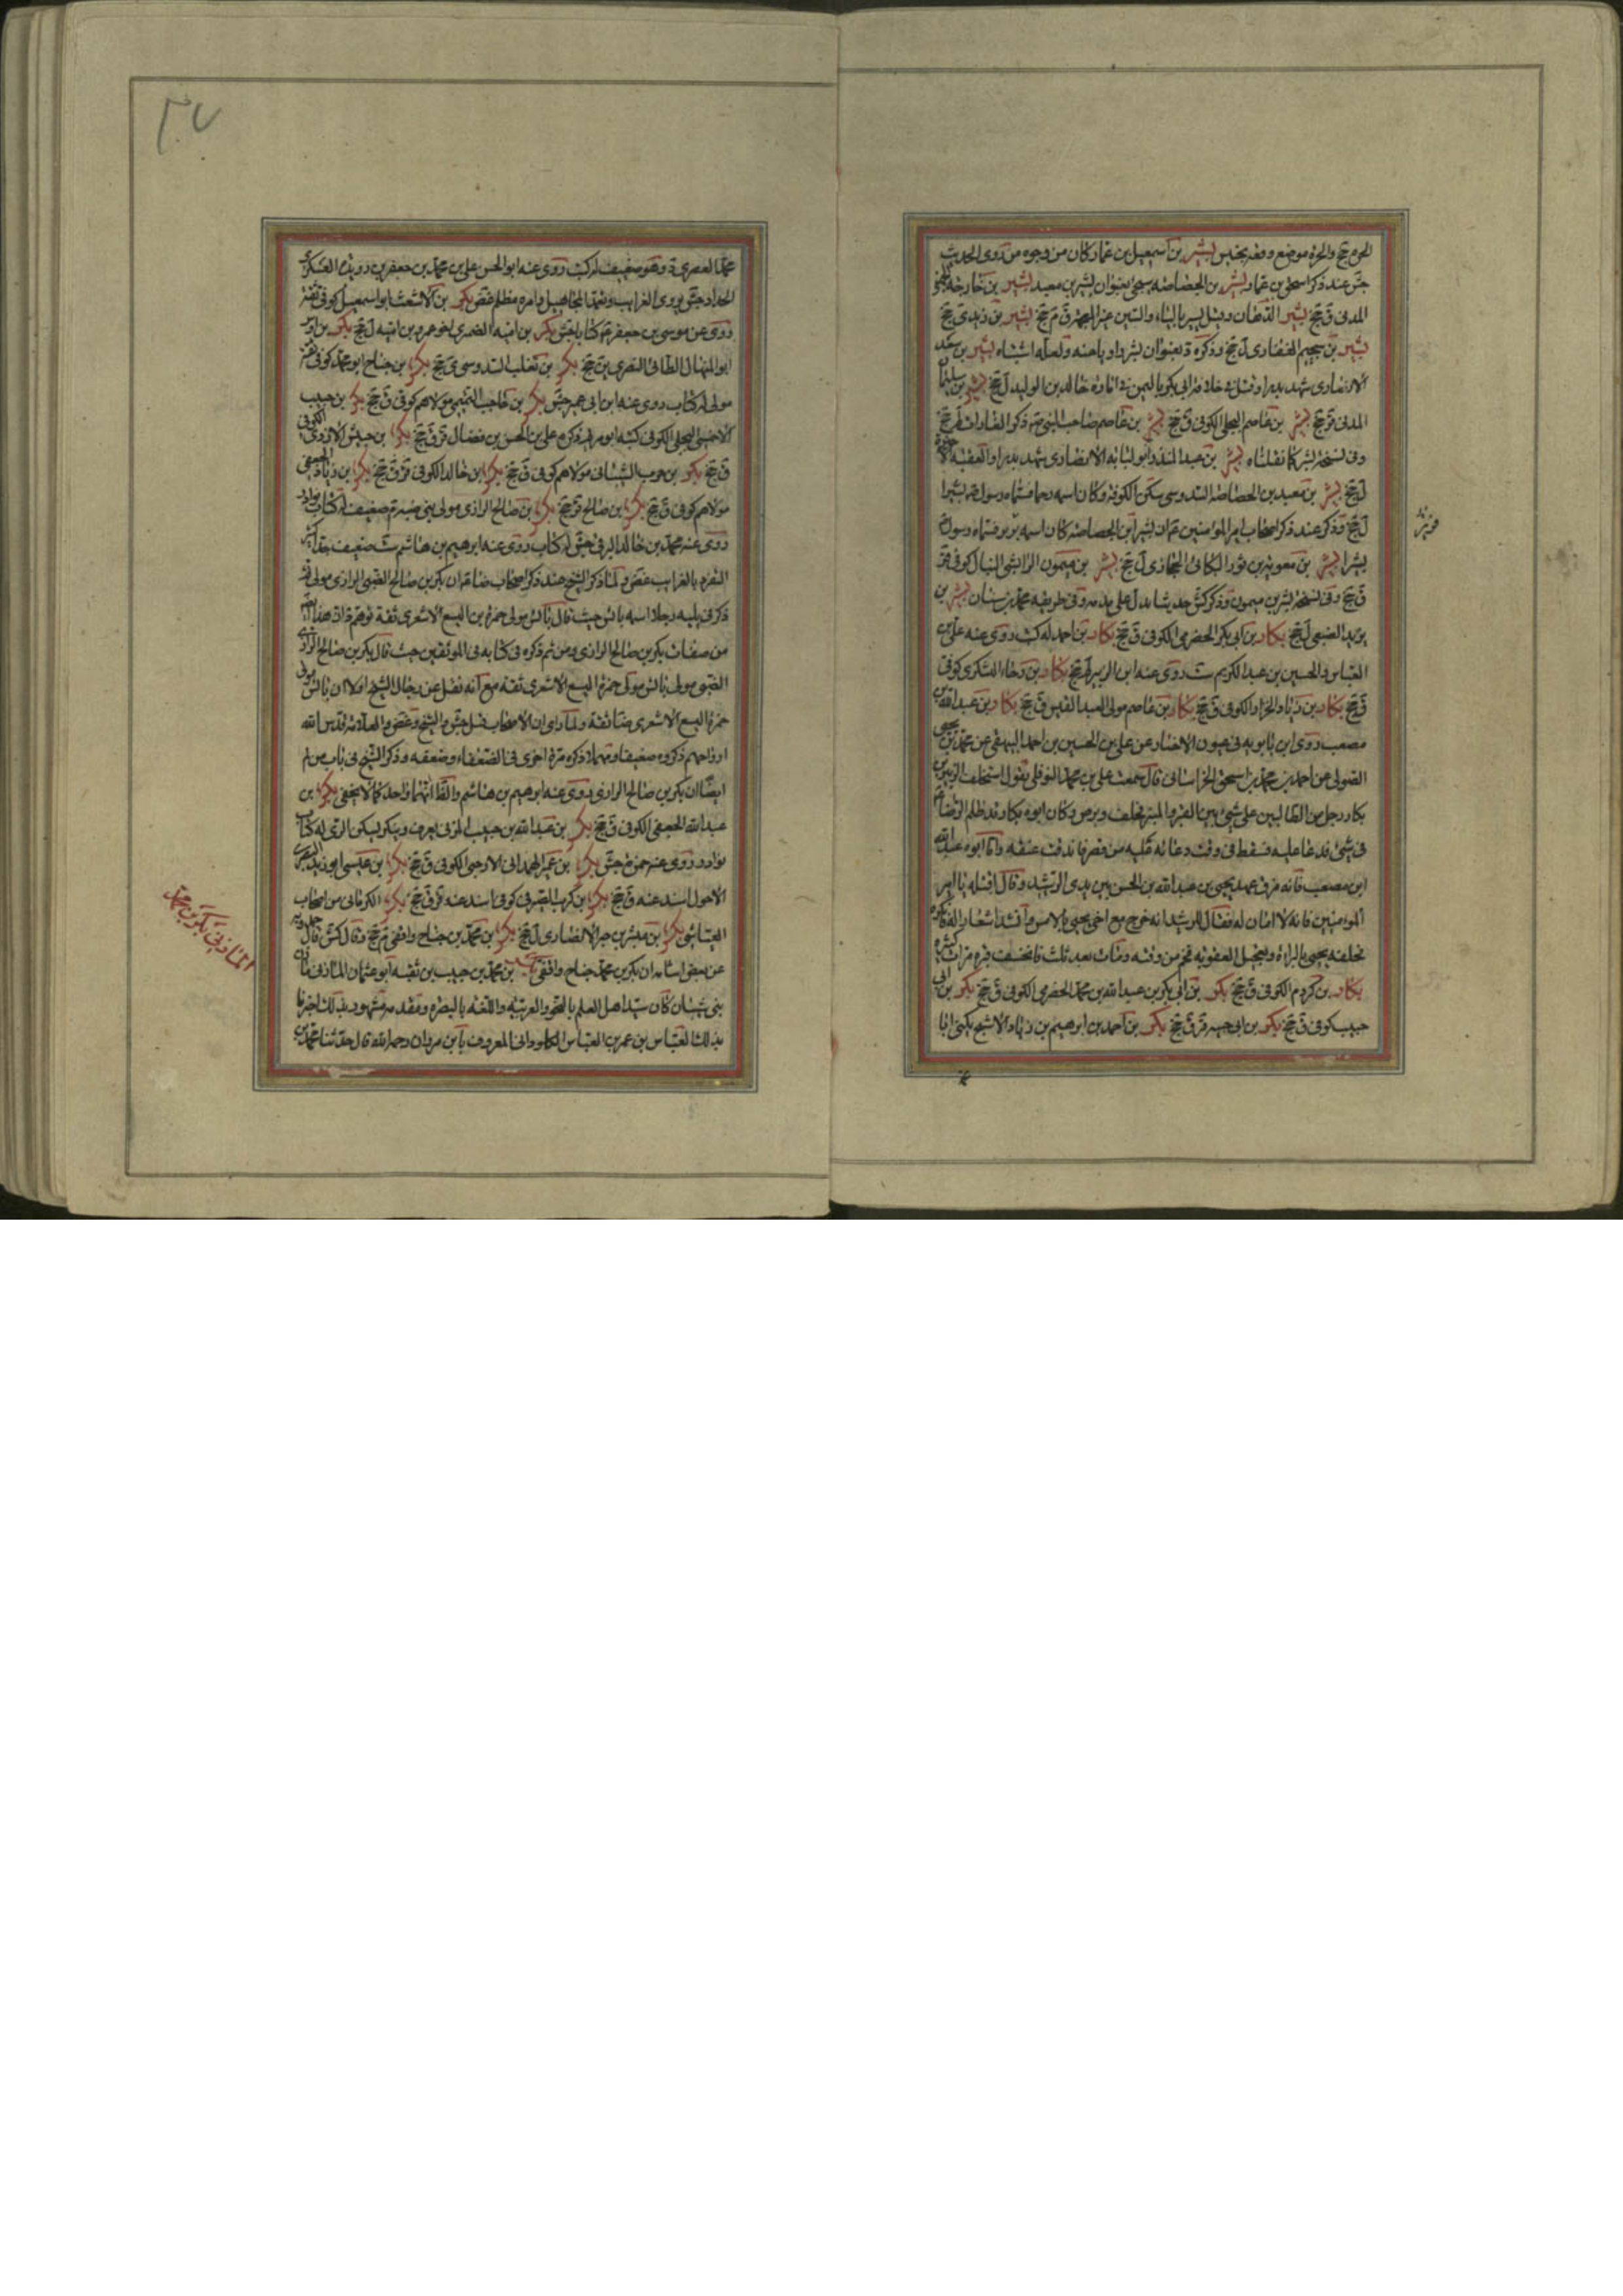 الحرم جخ والحرة موضع وقعة بحنين بشير بن اسمعيل بن عمار كان من وجوه من روى الحديث
جش عند ذكر اسحق بن عمار بشير بن الخصاصية سيجئ بعنوان بشير بن معبد بشير بن خارجة الجهني
المدني ق جخ بشير الدهان وقيل يسير بالياء والسين غير المعجمة ق م جخ بشير بن زيد ى جخ
بشير بن سحيم الغفارى ل جخ وذكره د بعنوان بشر او باعنه ولعله اشتباه بشير بن سعد
الانصارى شهد بدرا وقتل في خلافة ابي بكر باليمن في امارة خالد بن الوليد ل جخ بشير بن سليمان
المدني قر جخ بشير بن عاصم البجلى الكوفى ق جخ بشير بن عاصم صاحب النبي ص ذكر
وفى نسخة بشر كما نقلناه بشير بن عبد المنذر ابو لبابه الانصارى شهد بدرا والعقبة الاخيرة
ل جخ بشير بن معبد بن الخصاصية السدوسى سكن الكوفة وكان اسمه زحما فسماه رسول الله ص بشيرا
ل جخ وذكر عند ذكر اصحاب امير المؤمنين ع ان بشير ابن الخصاصية كان اسمه برير فسماه رسول الله
بشيرا بشير بن معوية بن ثور البكائى الحجازى ل جخ بشير بن ميمون الوابشى النبال كوفى قر
ق جخ وفى نسخة بشر بن ميمون وذكر كش حديثا يدل على مدحه وفى طريقه محمد بن سنان بشير بن
يزيد الضبعى ل جخ بكار بن ابى بكر الحضرمى الكوفى ق جخ بكار بن احمد له كتب روى عنه على بن
العباس والحسين بن عبد الكريم ست روى عنه ابن الزبير لم جخ بكار بن رجاء اليشكرى كوفى
ق جخ بكار بن زياد الخزاز الكوفى ق جخ بكار بن عاصم مولى لعبد القيس ق جخ بكار بن عبد الله بن
مصعب روى ابن بابويه فى عيون الاخبار عن على بن الحسين بن احمد البيهقى عن محمد بن يحيى
الصولى عن احمد بن محمد بن اسحق الخراسانى قال سمعت على بن محمد النوفلى يقول استحلف الزبير بن
بكار رجل من الطالبيين على شئ بين القبر والمنبر فحلف وبرص وكان ابوه بكار قد ظلم الرضا ع
فى شئ فدعا عليه فسقط فى وقت دعائه عليه من قصر فاندقت عنقه واما ابوه عبد الله
ابن مصعب فانه مزق عهد يحيى بن عبد الله بن الحسن بين يدى الرشيد وقال اقتله يا امير
المؤمنين فانه لا امان له فقال للرشيد انه خرج مع اخى يحيى بالامس وانشد اشعارا له فانكره
فحلفه يحيى بالبراءة وتعجيل العقوبة فحم من وقته ومات بعد ثلث فانخسف قبره مرات كثيرة
بكار بن كردم الكوفى ق جخ بكر بن ابى بكر بن عبد الله بن محمد الحضرمى الكوفى ق جخ بكر بن ابى
حبيب كوفى ق جخ بكر بن ابى حبيبة قر ق جخ بكر بن احمد بن ابرهيم بن زياد الاشج يكنى ابا
محمد العصرى د وهو ضعيف له كتب روى عنه ابو الحسن على بن محمد بن جعفر بن رويدة العسكرى
الحداد جش يروى الغرايب ويعتمد المجاهيل وامره مظلم غض بكر بن الاشعث ابو اسمعيل كوفى ثقة
روى عن موسى بن جعفر ع كتابا جش بكر بن امية الضمرى اخو عمرو بن امية ل جخ بكر بن اوس
ابو المنهال الطائى البصرى ين جخ بكر بن تغلب السدوسى ى جخ بكر بن جناح ابو محمد كوفى ثقة
مولى له كتاب روى عنه ابن ابى عمير جش بكر بن حاجب التميمى مولاهم كوفى ق جخ بكر بن حبيب
الاحمسى البجلى الكوفى كنيته ابو مريم ذكره على بن الحسن بن فضال قر ق جخ بكر بن حبيش الازدى الكوفى
ق جخ بكر بن حرب الشيبانى مولاهم كوفى ق جخ بكر بن خالد الكوفى قر ق جخ بكر بن زياد الجعفى
مولاهم كوفى ق جخ بكر بن صالح قر جخ بكر بن صالح الرازى مولى بنى ضبة م ضعيف له كتاب نوادر
روى عنه محمد بن خالد البرقى جش له كتاب روى عنه ابرهيم بن هاشم ست ضعيف جدا كثير
التفرد بالغرايب غض
ذكر فى يليه رجلا اسمه بائس حيث قال بائس مولى حمزة بن اليسع الاشعرى ثقة توهم د ان هذا ثقة
من صفات بكر بن صالح الرازى ومن ثم ذكره فى كتابه فى الموثقين حيث قال بكر بن صالح الرازى
الضبى مولى بائس مولى حمزة اليسع الاشعرى ثقة مع انه نقل عن رجال الشيخ اولا ان بائس مولى
حمزة اليسع الاشعرى ضا ثقة ولما راى ان الاصحاب مثل جش والشيخ وغض والعلامة قدس الله
ارواحهم ذكروه ضعيفا ذكره مرة اخرى فى الضعفاء وضعفه وذكر الشيخ فى باب من لم
ايضا ان بكر بن صالح الرازى روى عنه ابرهيم بن هاشم والظ انهما واحد كما لا يخفى بكر بن
عبد الله الجعفى الكوفى ق جخ بكر بن عبد الله بن حبيب المزنى يعرف وينكر يسكن الرى له كتاب
نوادر روى عنه حمزة جش بكر بن عمير الهمدانى الارحبى الكوفى ق جخ بكر بن عيسى ابو زيد البصرى
الاحول اسند عنه ق جخ بكر بن كرب الصيرفى كوفى اسند عنه قر ق جخ بكر الكرمانى من اصحاب
العياشى بكر بن مبشر بن جبر الانصارى ل جخ بكر بن محمد بن جناح واقفى م جخ وقال كش قال حمدويه
عن بعض اشياخه ان بكر بن محمد جناح واقفى بكر بن محمد بن حبيب بن بقية ابو عثمان المازنى مازن
بنى شيبان كان سيد اهل العلم بالنحو والعربية واللغة بالبصرة ومقدمته مشهورة بذلك اخبرنا
بذلك العباس بن عمر بن العباس الكلوذانى المعروف بابن مروان رحمه الله قال حدثنا محمد بن
المازنى بكر بن محمد